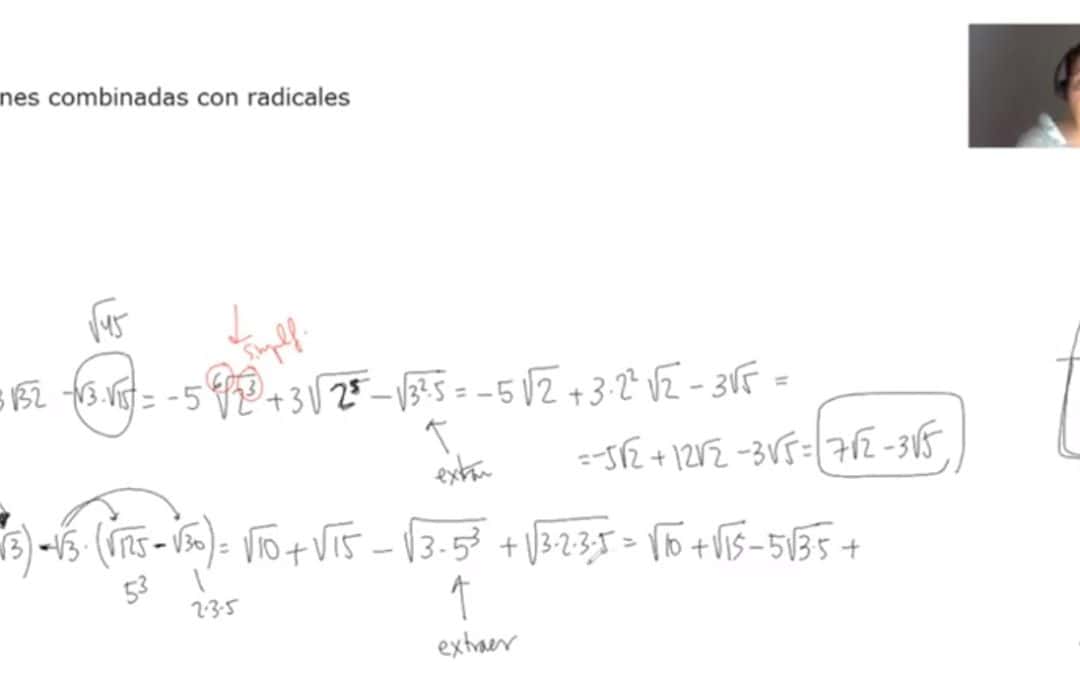 nes combinadas con radicales
√45
simplf.
3√32 -√3·√15 = -5 ⁶√2³ + 3√2⁵ - √3²·5 = -5√2 + 3·2²√2 - 3√5 =
extra
= -5√2 + 12√2 - 3√5 = 7√2 - 3√5
√3) - √3·(√125 - √30) = √10 + √15 - √3·5³ + √3·2·3·5 = √10 + √15 - 5√3·5 +
5³
2·3·5
extraer